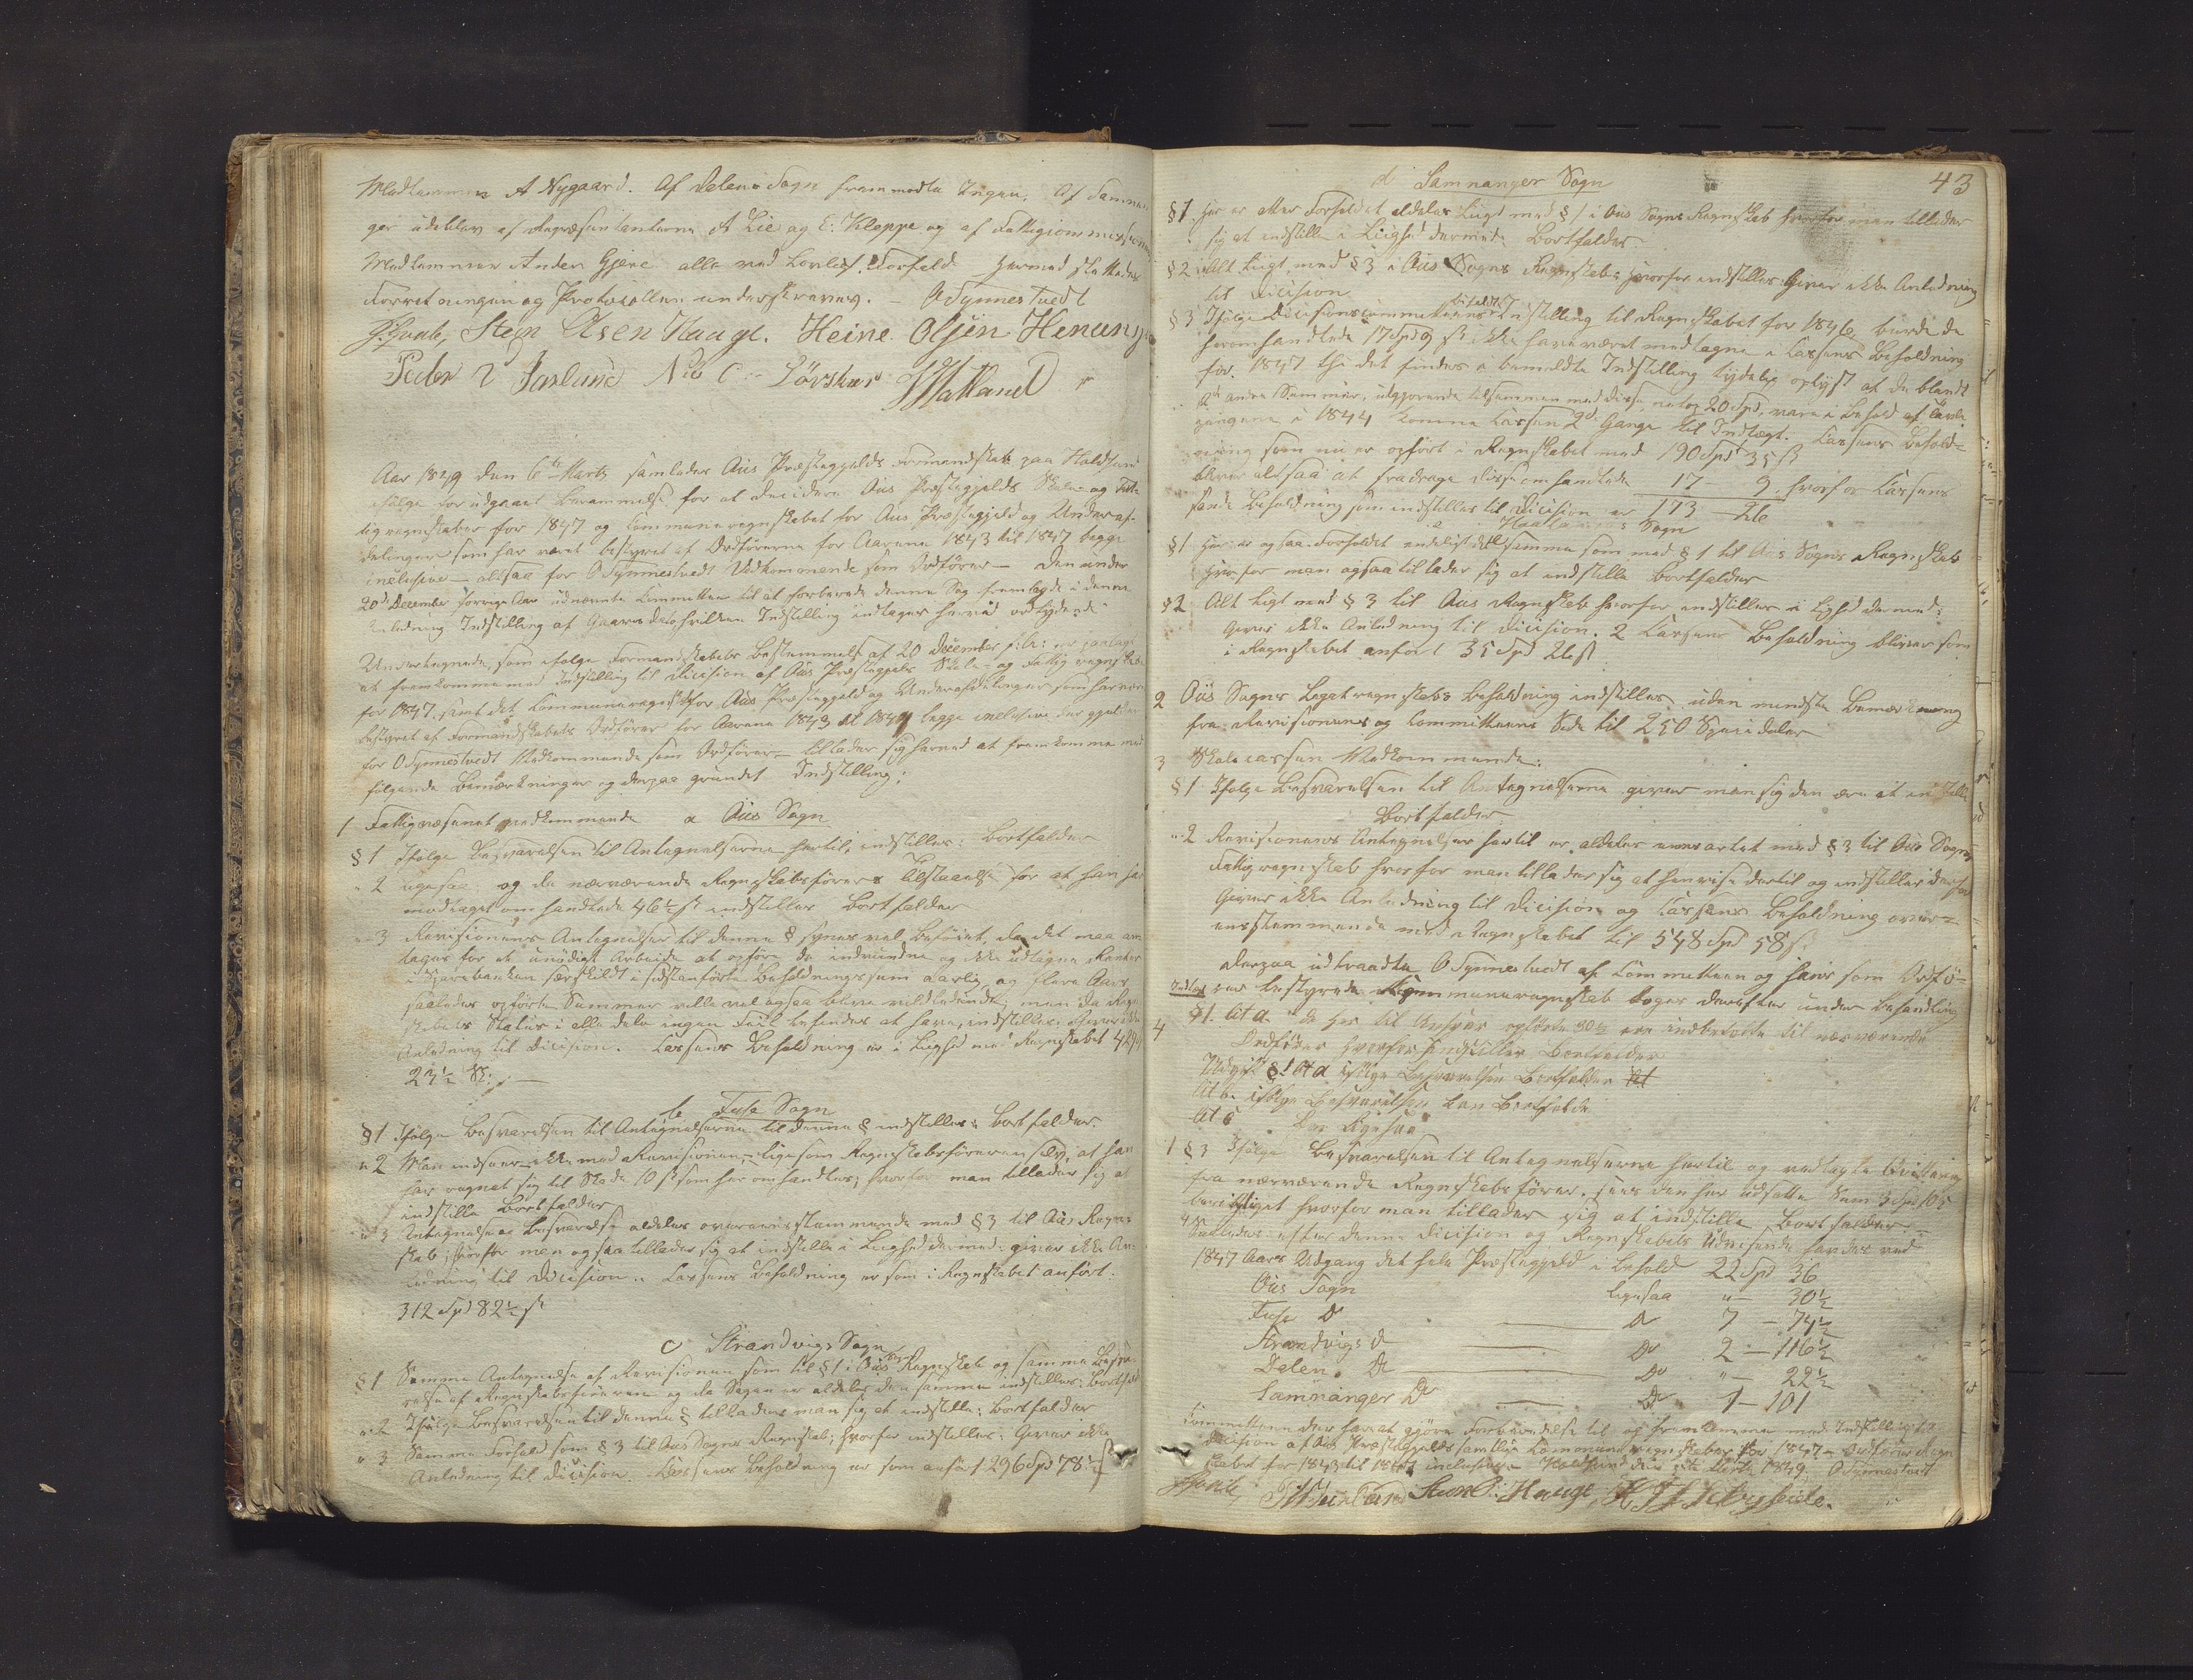 Medlemmen A Nygaard. Af Dalens Sogn fremmødte Ingen. Af Samnan-
ger udebleve af Repræsentanterne A Lie og E. Kleppe og af Fattigcommissionens
Medlemmer Anders Gjære alle ved Lovligt Forfald. Hermed sluttedes
Forretningen og Protocollen underskreves. – O Synnestvedt
Stegn Olsen Hauge. Heine Olsen Henung
Peder Nils C. Lövskar
Aar 1849 den 6te Marts samledes Ous Præstegjelds Formandskab paa Holdhuus
ifølge forudgaaet Berammelse for at decidere Ous Præstegjelds Skole- og Fat-
tigregnskaber for 1847 og Communeregnskabet for Ous Præstegjeld og Underaf-
delinger som har været bestyret af Ordførerne for Aarene 1843 til 1847 begge
inclusive – altsaa for O Synnestvedt Vedkommende som Ordfører – Den under
20de December forrige Aar udnævnte Committee til at forberede denne Sag fremlagde i denne
Anledning Indstilling af Gaars Dato hvilken Indstilling indtages herved ordlydende
Undertegnede, som ifølge Formandskabets Bestemmelse af 20 December f: A: er paalagt
at fremkomme med Indstilling til Decision af Ous Præstegjelds Skole- og Fattigregnskaber
for 1847, samt det Communeregnsk. for Ous Præstegjeld og Underafdelinger som har været
bestyret af Formandskabets Ordfører for Aarene 1843 til 1847 begge inclusive der gjelder
for O Synnestvedt Vedkommende som Ordfører – tillader sig herved at fremkomme med
følgende Bemærkninger og derpaa grundet Indstilling:
1 Fattigvæsenet vedkommende a Ous Sogn
§ 1 Ifølge Besvarelsen til Antegnelserne hertil, indstilles: Bortfalder
" 2 ligesaa; og da nærværende Regnskabsførers Tilstaaelse for at han har
modtaget omhandlede 46½ ß indstilles Bortfalder
" 3 Revisionens Antegnelser til denne § synes vel beføiet, da det maa an-
tages for et unødigt Arbeide at opføre de indvundne og ikke udtagne Renter
i Sparebanken særskildt i sidstanførte Beholdningssum aarlig, og flere Aars
saaledes opførte Summer ville vel ogsaa blive vildledende, men da Regn-
skabets Status i alle dele ingen Feil befindes at have, indstilles: Giver ikke
Anledning til Decision. Cassens Beholdning er i Liighed med Regnskabet
23½ Sk: –
b Fuse Sogn
§ 1 Ifølge Besvarelsen til Antegnelserne til denne § indstilles: Bortfalder.
" 2 Man indseer ikke med Revisionen, – ligesom Regnskabsføreren selv, at han
har regnet sig til Skade 10 ß som her omhandles; hvorfor man tillader sig at
indstille Bortfalder
" 3 Antegnelse og Besvarelse aldeles overensstemmende med § 3 til Ous Regn-
skab; hvorfor man ogsaa tillader sig at indstille i Liighed dermed: giver ikke An-
ledning til Decision. Cassens Beholdning er som i Regnskabet anført.
312 Spd 82½ ß
c Strandvigs Sogn
§ 1 Samme Antegnelse af Revisionen som til § 1 i Ous Regnskab og samme Besva-
relse af Regnskabsføreren og da Sagen er aldeles den samme indstilles: Bortfalder
" 2 Ifølge Besvarelsen til denne § tillader man sig at indstille: Bortfalder
" 3 Samme Forhold som § 3 til Ous Sogns Regnskab; hvorfor indstilles: Giver ikke
Anledning til Decision. Cassens Beholdning er som anført 296 Spd 78½ ß
43
d Samnanger Sogn
§ 1 Her er atter Forholdet aldeles Liigt med § 1 i Ous Sogns Regnskab hvorfor man tillader
sig at indstille i Liighed dermed: Bortfalder
§ 2 Alt Liigt med § 3 i Ous Sogns Regnskab: hvorfor indstilles Giver ikke Anledning
til Decision
§ 3 Ifølge Decisionscommitteens bifaldte Indstilling til Regnskabet for 1846, burde de
heromhandlede 17 Spd 9 ß ikke have været medtagne i Cassens Beholdning
for 1847 thi det findes i bemeldte Indstilling tydelig oplyst at de blandt
andre Summer, udgjørende tilsammen med disse netop 20 Spd, vare i Behold af
i 1844 komme Cassen 2d Gange til Indtægt. Cassens Behold-
ning som nu er opført i Regnskabet med 190 Spd 35 ß
bliver altsaa at fradrage disse omhandlede 17 – 9. hvorfor Cassens
sande Beholdning som indstilles til Decision er 173 – 26
e Sogn
§ 1 Her er ogsaa Forholdet endeligt det samme som med § 1 til Ous Sogns Regnskab
hvorfor man ogsaa tillader sig at indstille Bortfalder
§ 2 Alt ligt med § 3 til Ous Regnskab hvorfor indstilles i Lighed dermed:
Giver ikke Anledning til Decision. 2 Cassens Beholdning bliver som
i Regnskabet anført 35 Spd 26 ß
2 Ous Sogns Legatregnskabs Beholdning indstilles uden mindste Bemærkning
fra Revisionens og Committeens Side til 250 Speciedaler
3 Skolecassen Vedkommende:
§ 1 Ifølge Besvarelsen til Antegnelserne giver man sig den ære at indstille
Bortfalder
" 2 Revisionens Antegnelser hertil er aldeles eensartet med § 3 til Ous Sogns
Fattigregnskab hvorfor man tillader sig at henvise dertil og indstiller derfor
Giver ikke Anledning til Decision og Cassens Beholdning over-
ensstemmende med Regnskabet til 548 Spd 58 ß
Derpaa udtraadte O Synnestvedt af Committeen og hans som Ordfø-
rer bestyrede Communeregnskab toges derefter under Behandling
4 § 1. Lit a de her til Ansvar opførte 30½ ere indbetalte til nærværende
Ordfører hvorfor Indstilles Bortfalder
Udgift § 1 Lit a ifølge Besvarelsen Bortfalder
Lit b. ifølge Besvarelsen kan Bortfalde
Lit c Kan Ligesaa
1 § 3 Ifølge Besvarelsen til Antegnelserne hertil og vedlagte Qvittering
fra nærværende Regnskabsfører, sees den her udsatte Sum 3 Spd 105
berigtiget hvorfor man tillader sig at indstille Bortfalder –
Saaledes efter denne Decision og Regnskabets Udvisende havdes ved
1847 Aars Udgang det hele Præstegjeld i Behold 22 Spd 36
Ous Sogn Ligesaa " – 30½
Fuse Do Do 7 – 74½
Strandvigs Do Do 2 – 116½
Dalen Do Do " – 22½
Samnanger Do Do 1 – 101
Committeen der havet gjøre Forberedelse til og fremkomme med Indstilling til
Decision af Ous Præstegjelds samtlige Communeregnskaber for 1847 – Ordfører Regn-
skabet for 1843 til 1847 inclusive Holdhuus den 5te Marts 1849 O Synnestvedt
Steen O: Hauge,